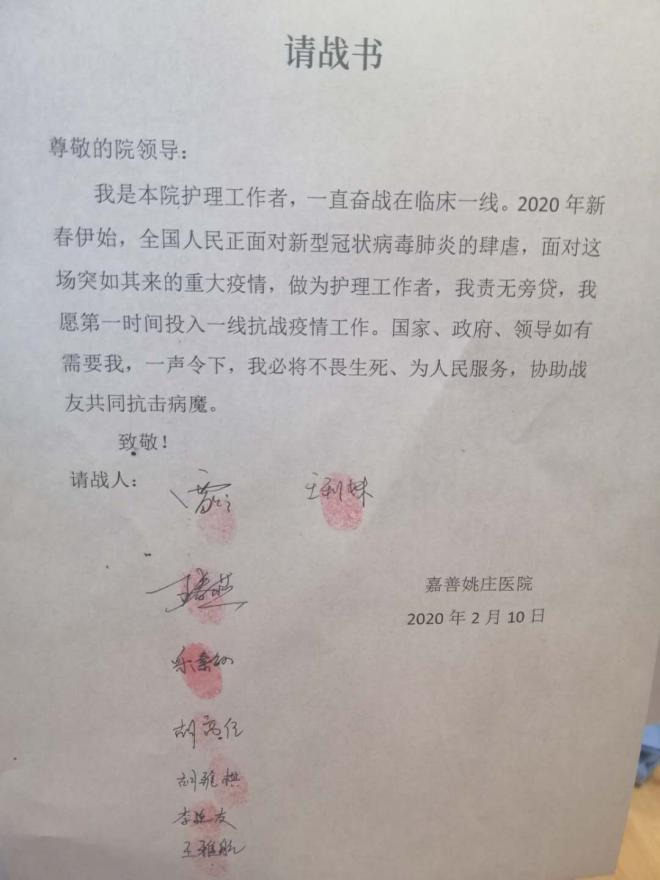 请战书
尊敬的院领导：
我是本院护理工作者，一直奋战在临床一线。2020年新
春伊始，全国人民正面对新型冠状病毒肺炎的肆虐，面对这
场突如其来的重大疫情，做为护理工作者，我责无旁贷，我
愿第一时间投入一线抗战疫情工作。国家、政府、领导如有
需要我，一声令下，我必将不畏生死、为人民服务，协助战
友共同抗击病魔。
致敬！
请战人：
王利妹
嘉善姚庄医院
2020年2月10日
胡雅棋
王雅